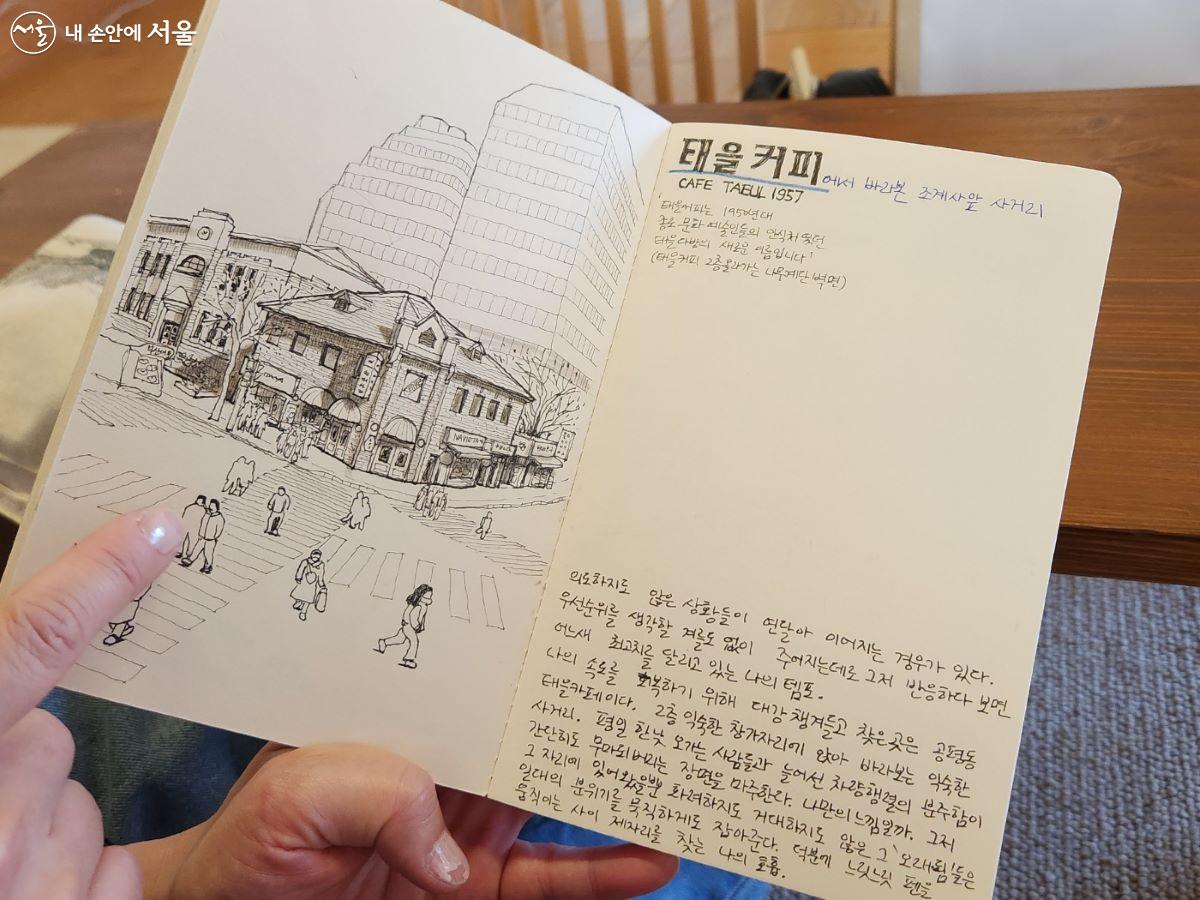 서울 내 손안에 서울
태을커피에서 바라본 조계사앞 사거리
CAFE TAEUL 1957
'태을커피는 1950년대
종로 문화 예술인들의 안식처 였던
태을다방의 새로운 이름입니다'
(태을커피 2층올라가는 나무계단 벽면)
NAVIC
의도하지도 않은 상황들이 연달아 이어지는 경우가 있다.
우선순위를 생각할 겨를도 없이 주어지는데로 그저 반응하다 보면
어느새 최고치를 달리고 있는 나의 템포.
나의 속도를 회복하기 위해 대강 챙겨들고 찾은곳은 공평동
태을카페이다. 2층 익숙한 창가자리에 앉아 바라보는 익숙한
사거리. 평일 한낮 오가는 사람들과 늘어선 차량행렬의 분주함이
간단히도 무마되버리는 장면을 마주한다. 나만의 느낌일까. 그저
그 자리에 있어왔을뿐 화려하지도 거대하지도 않은 그 '오래됨'들은
일대의 분위기를 묵직하게도 잡아준다. 덕분에 느릿느릿 펜을
움직이는 사이 제자리를 찾는 나의 호흡.